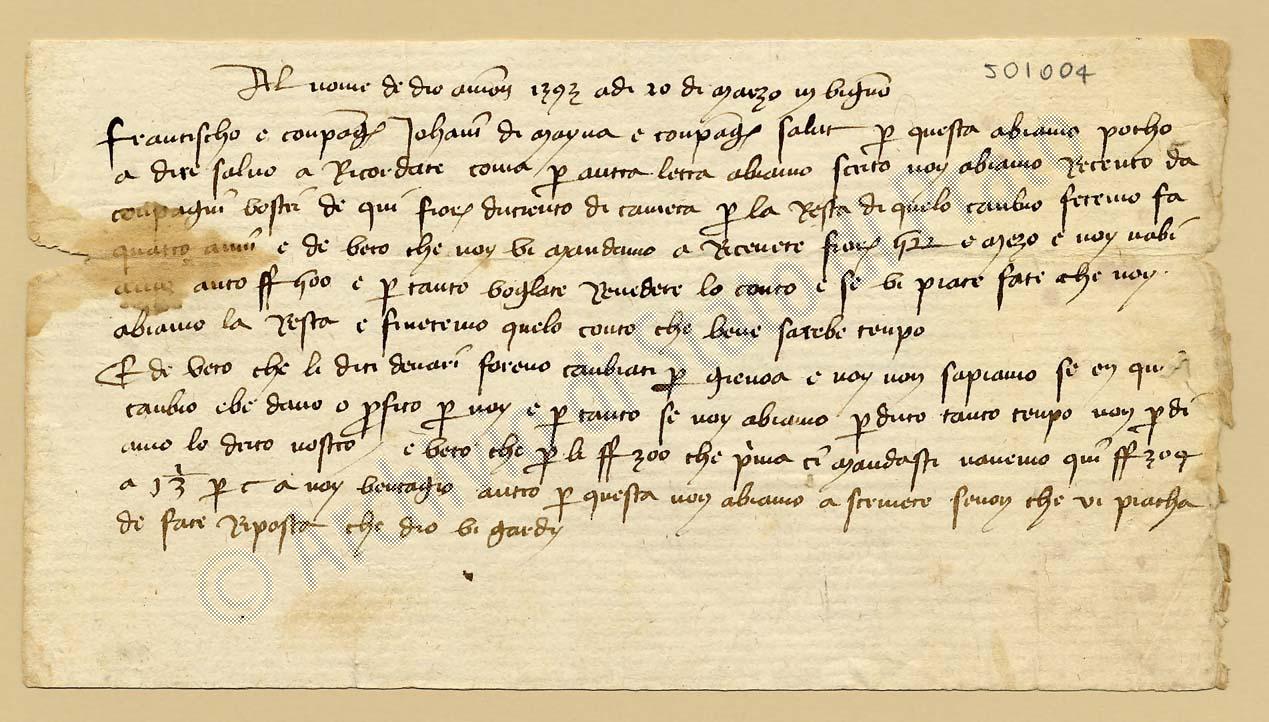 501004
Al nome de dio amen 1393 adi 20 di Marzo in vignō
Francischo e conpāgī Johanī di Mayna e conpāgī salut per questa abiamo pocho
a dire salvo a Ricordare coma per autra letra abiamo scrito noy abiamo Receuto da
conpagnī vostrī de quī fiorī duciento di camera per la Resta di quelo canbio feremo fa
quatro annī e de vero che noy vi mandamo a Ricevere fiorī e mezo e noy n abī
auto ff 500 e per tanto voglate Revedere lo conto e se vi piace fate che noy
abiamo la Resta e fineremo quelo conto che bene sarebe tenpo
E de vero che li dici denarī foreno canbiati per gienoa e noy non sapiamo se en que
canbio ebe dano o profito per noy e per tanto se noy abiamo perduto tanto tenpo non perdi
amo lo drito nostro e vero che per li ff 300 che prima cī mandasti navemo quī ff 304
a 1 3 per c a noy ventagio autro per questa non abiamo a scrivere senon che vi piacha
de fare Riposta che dio vi gardy
© Archivio di Stato di Prato